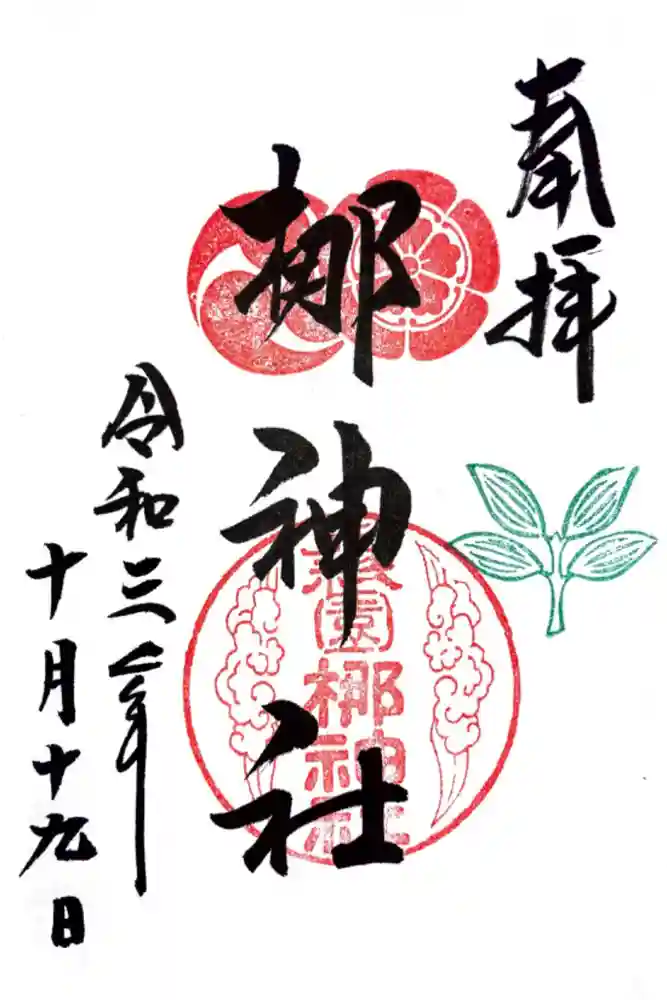 奉拝
梛神社
元祇園梛神社
令和三年
十月十九日